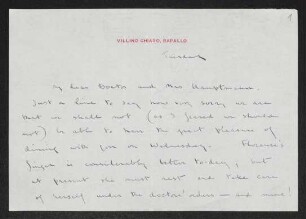 1
VILLINO CHIARO, RAPALLO.
Sunday
My dear Doctor and Mrs Hauptmann.
Just a line to say how very sorry we are
that we shall not (as I feared we should
not) be able to have the great pleasure of
dining with you on Wednesday. Florence's
is considerably better to-day, but
at present she must rest and take care
of herself under the doctor's orders — and mine!